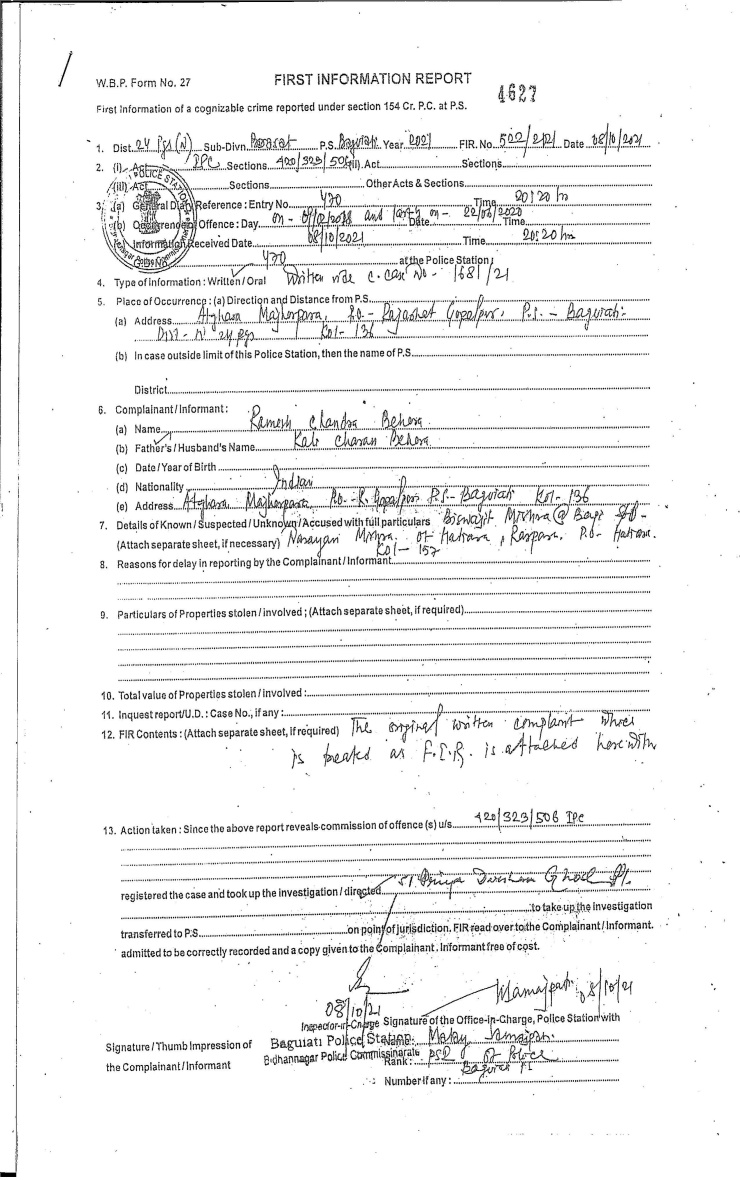 W.B.P. Form No. 27
FIRST INFORMATION REPORT
4627
First Information of a cognizable crime reported under section 154 Cr. P.C. at P.S.
1. Dist. 24 Pgs (N) Sub-Divn. Barasat P.S. Baguiati Year 2021 FIR. No. 502/2021 Date 08/10/2021
2. (i) Act IPC Sections 420/323/506 (ii) Act Sections
(iii) Act Sections Other Acts & Sections
3. (a) General Diary Reference : Entry No. 470 Time 20:20 hr
(b) Occurrence of Offence : Day on - and lastly on - 22/06/2020 Date Time
Information Received Date 08/10/2021 Time 20:20 hrs
470 at the Police Station
4. Type of information : Written / Oral Written vide c. case No - 1681/21
5. Place of Occurrence : (a) Direction and Distance from P.S.
(a) Address Atghara Majherpara, P.O. - Rajarhat Gopalpur, P.S. - Baguiati
Dist - N 24 Pgs Kol - 136
(b) In case outside limit of this Police Station, then the name of P.S.
District
6. Complainant / Informant :
(a) Name Ramesh Chandra Behera
(b) Father's / Husband's Name Kali Charan Behera
(c) Date / Year of Birth
(d) Nationality Indian
(e) Address Atghara Majherpara, P.O. - R. Gopalpur P.S - Baguiati Kol - 136
7. Details of Known / Suspected / Unknown / Accused with full particulars Biswajit Mishra @ Bapi S/O -
(Attach separate sheet, if necessary) Narayan Mishra of Hatiara, P.O - Hatiara.
Kol - 157
8. Reasons for delay in reporting by the Complainant / Informant
9. Particulars of Properties stolen / involved ; (Attach separate sheet, if required)
10. Total value of Properties stolen / involved :
11. Inquest report/U.D. : Case No., if any :
12. FIR Contents : (Attach separate sheet, if required) The original written complaint which
is treated as F.I.R. is attached herewith
13. Action taken : Since the above report reveals commission of offence (s) u/s 420/323/506 IPC
registered the case and took up the investigation / directed SI Priya Darshan Ghosh
to take up the investigation
transferred to P.S. on point of jurisdiction. FIR read over to the Complainant / Informant.
admitted to be correctly recorded and a copy given to the Complainant. Informant free of cost.
08/10/21
08/10/21
Inspector-in-Charge Signature of the Office-In-Charge, Police Station with
Baguiati Police Station Name: Malay
Signature / Thumb Impression of
Bidhannagar Police Commissinarate Rank : of Police
the Complainant / Informant
Baguiati PS
Number if any :